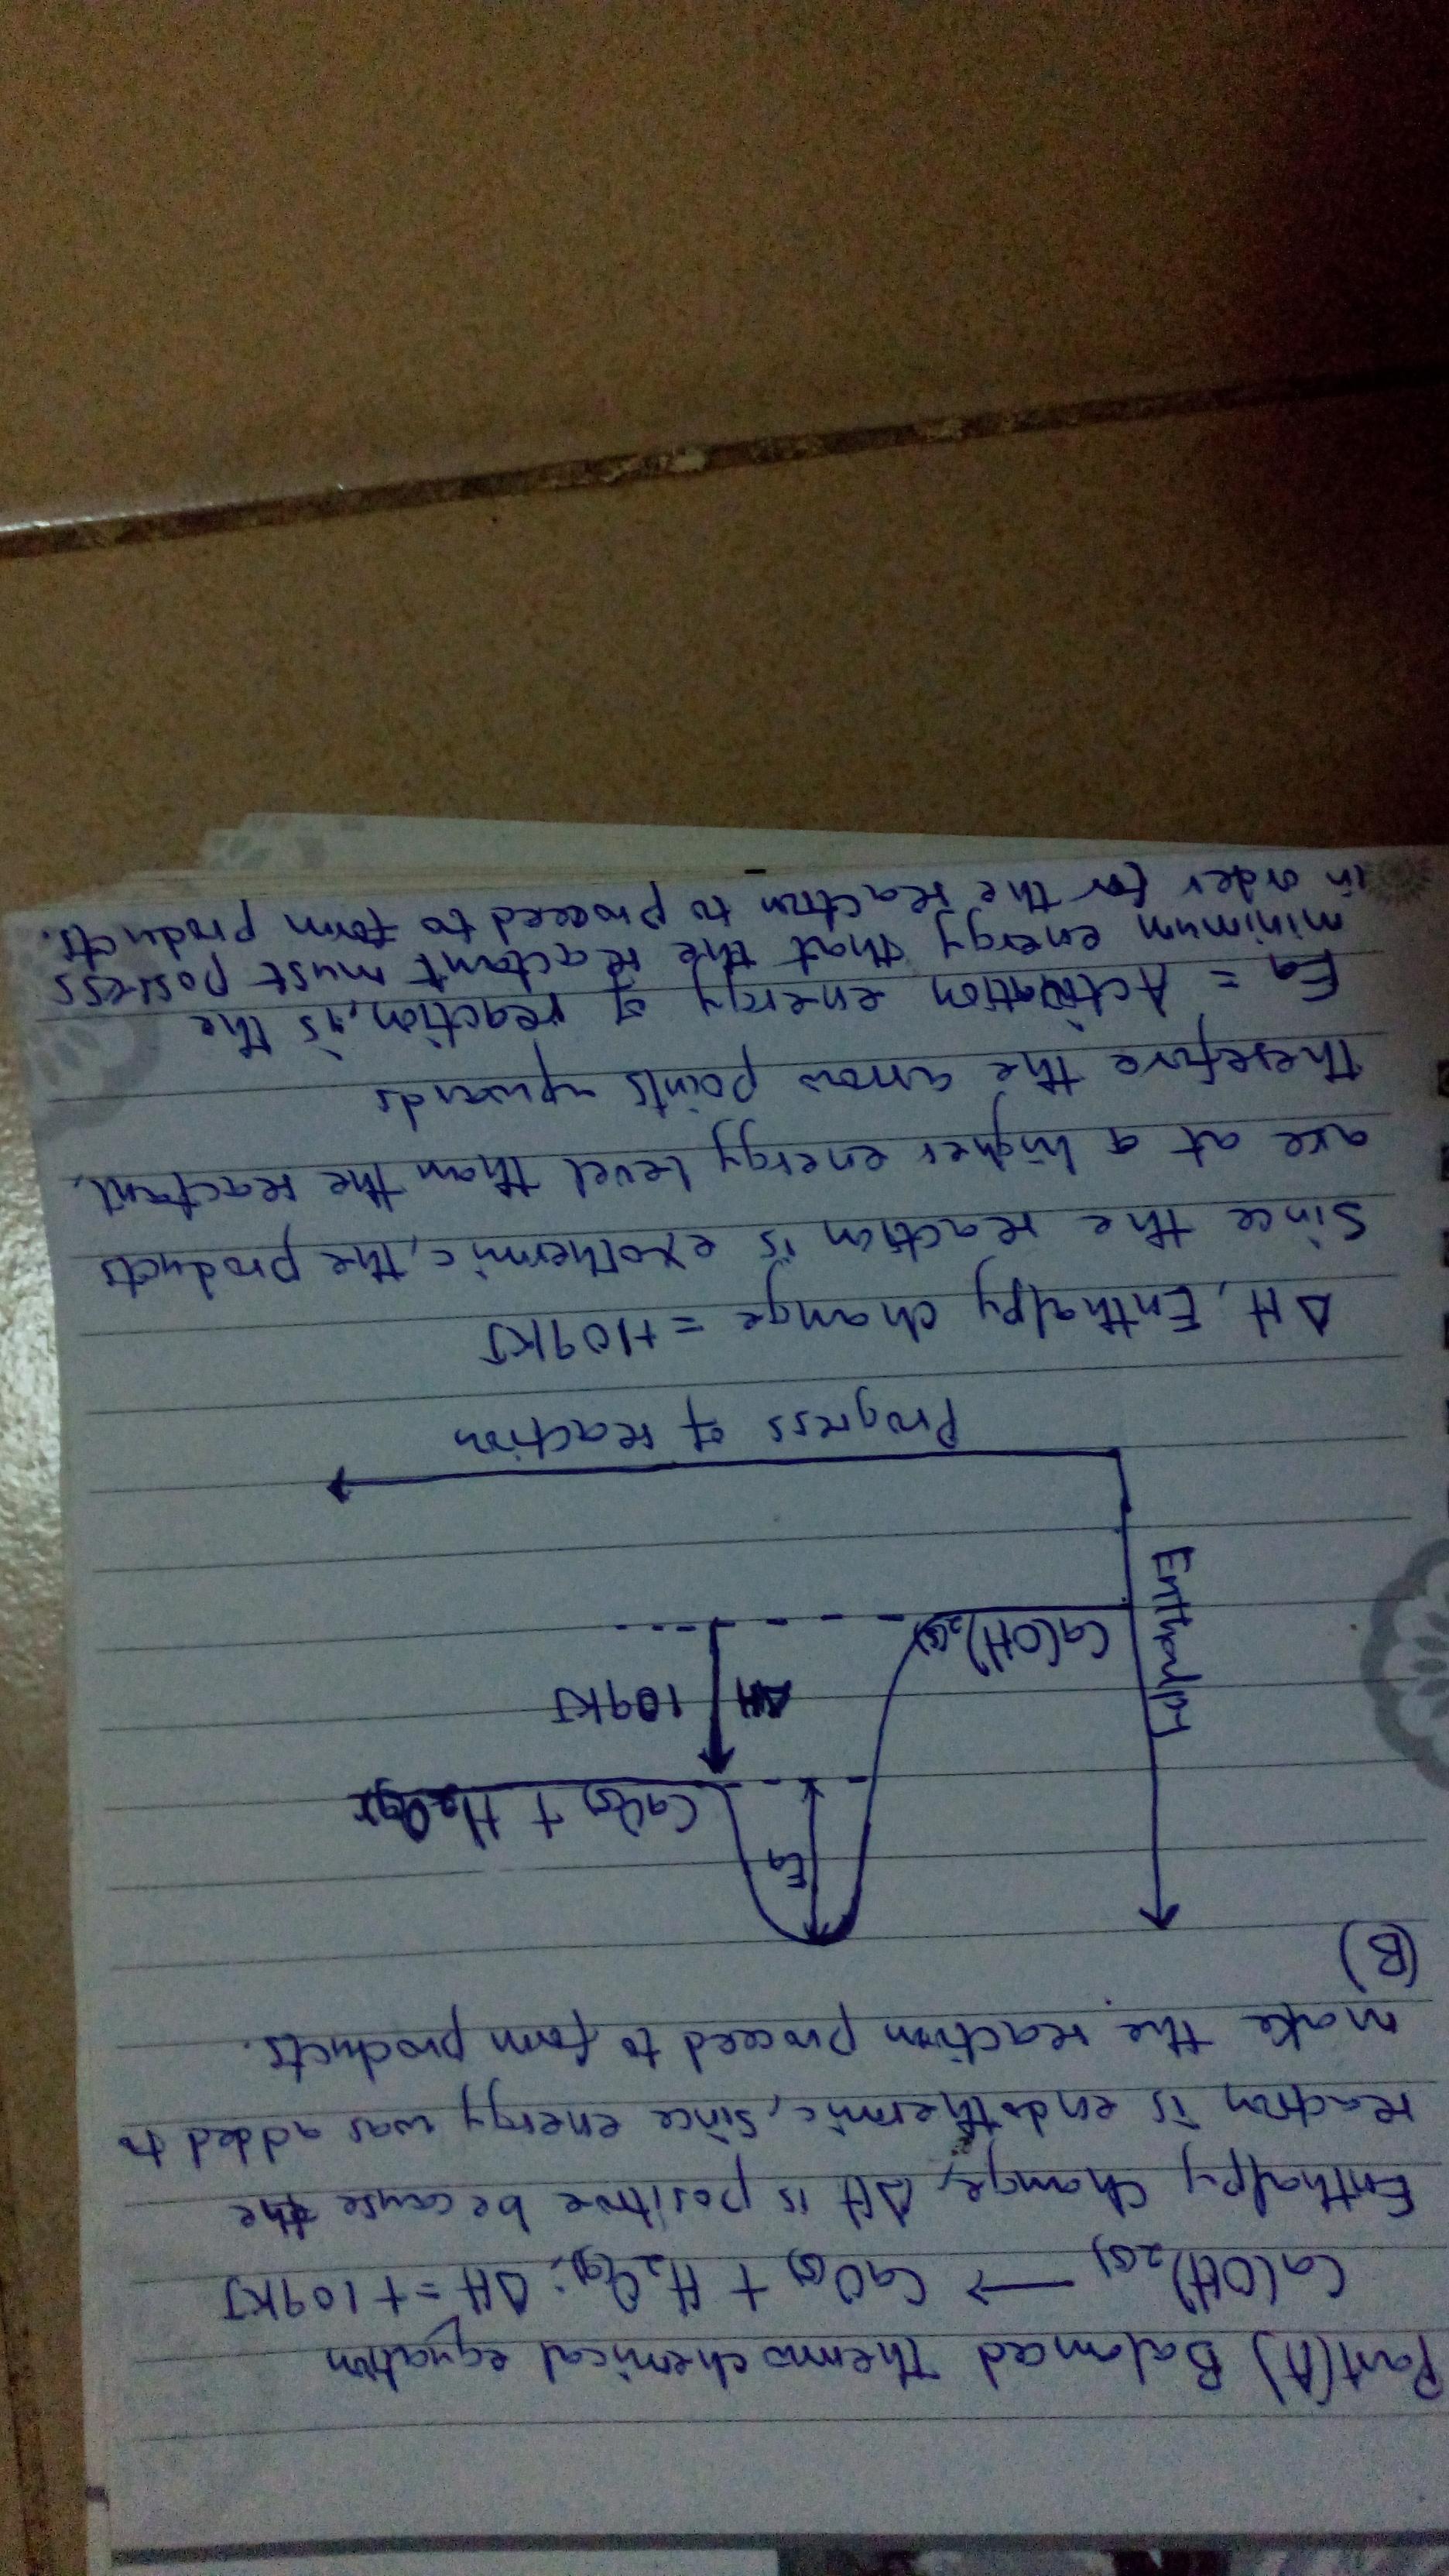 Part(A) Balanced Thermochemical equation
Ca(OH)2(s) → CaO(s) + H2O(g); ΔH = +109KJ
Enthalpy change, ΔH is positive because the
reaction is endothermic, since energy was added to
make the reaction proceed to form products.
(B)
Enthalpy
Ea
CaO(s) + H2O(g)
ΔH 109KJ
Ca(OH)2(s)
Progress of reaction
ΔH, Enthalpy change = +109KJ
Since the reaction is exothermic, the products
are at a higher energy level than the reactant.
Therefore the arrow points upwards
Ea = Activation energy of reaction, is the
minimum energy that the reactant must possess
in order for the reaction to proceed to form products.